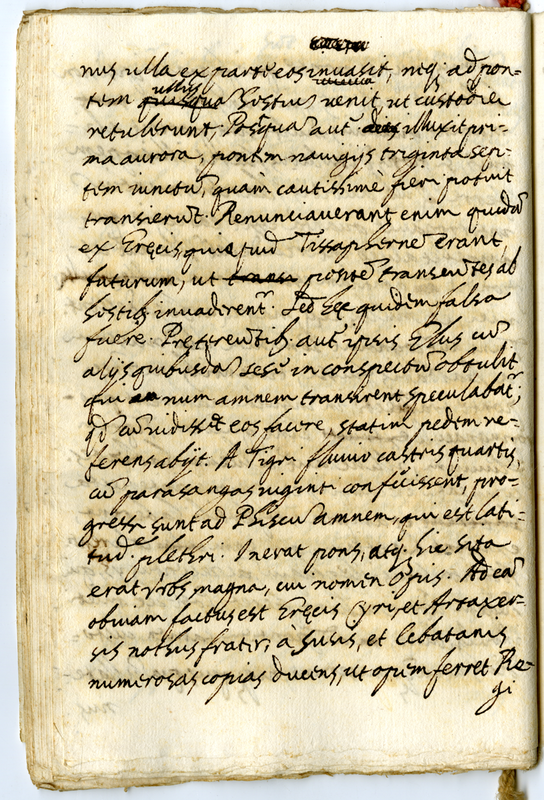 nus ulla ex parte eos inuasit, neq; ad pon-
ullus
tem quisquā hostiū venit, ut custodes
retulerunt. Posquā aut illuxit pri-
ma aurora, pontem nauigijs triginta sep-
tem iunctū, quàm cautissimè fieri potuit
transierūt. Renunciauerant enim quidā
ex Gręcis, qui apud Tissaphernē erant,
futurum, ut pontē transeūtes ab
hostib. inuaderentr. Sed hęc quidem falsa
fuere. Pretereūtib. aut ipsis Glus cū
alijs quibusdā sese in conspectū obtulit
qui num amnem transirent speculabatr;
qd cū uidisset eos facere, statim pedem re-
ferens abijt. A Tigri fluuio castris quartis,
cū parasangas uiginti confecissent, pro-
gressi sunt ad Phiscū amnem, qui est lati-
tud.e plethri. Inerat pons, atq. hic sita
erat vrbs magna, cui nomen Opis. Ad eā
obuiam factus est Gręcis Cyri, et Artaxer-
sis nothus frater, à Susis, et Ecbatanis
numerosas copias ducens, ut opem ferret Re-
gi